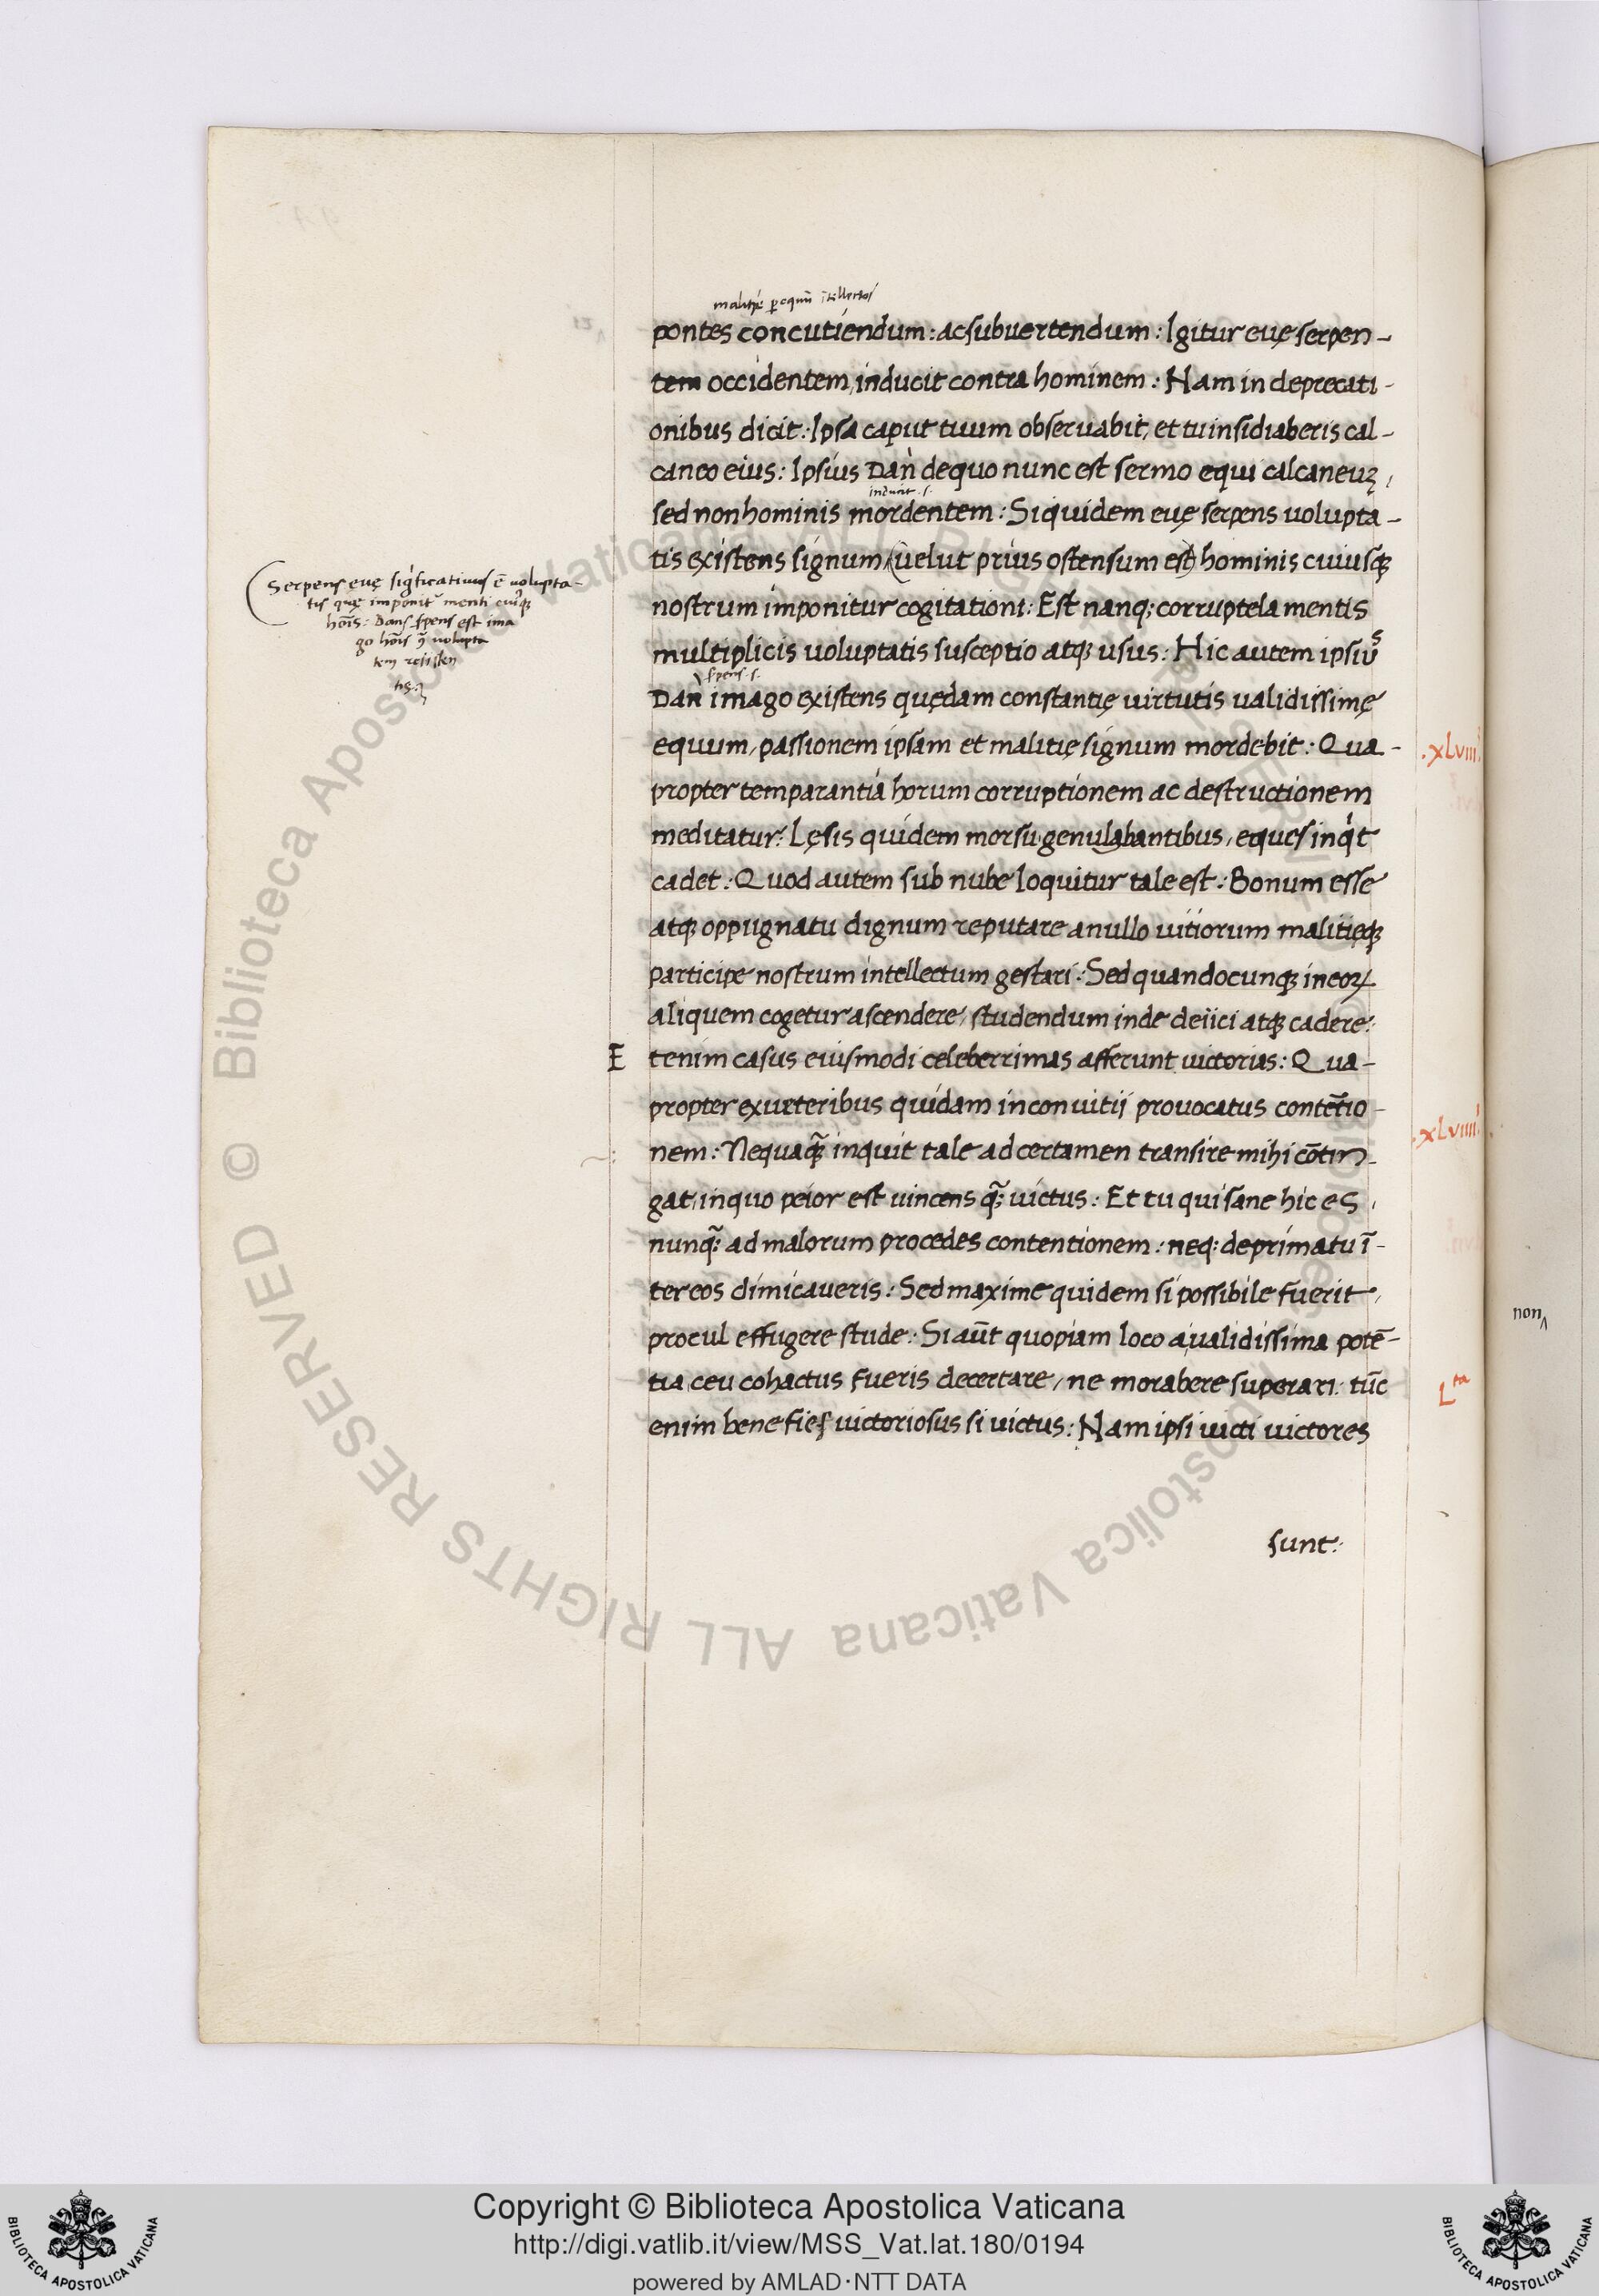 malitię p equm ītellectos
pontes concutiendum: ac subuertendum: Igitur euę serpen-
tem occidentem, inducit contra hominem: Nam in deprecati-
onibus dicit: Ipsa caput tuum obseruabit, et tu insidiaberis cal-
caneo eius: Ipsius Dan de quo nunc est sermo equi calcaneuʒ,
sed non hominis mordentem: Siquidem euę serpens uolupta-
tis existens signum, (uelut prius ostensum est) hominis cuiusqʒ
nostrum imponitur cogitationi: Est nanqʒ corruptela mentis
multiplicis uoluptatis susceptio atqʒ usus: Hic autem ipsius
spens .s.
Dan imago existens quędam constantię uirtutis ualidissimę
equum, passionem ipsam et malitię signum mordebit: Qua-
propter temparantia horum corruptionem ac destructionem
meditatur: Lęsis quidem morsu genu labantibus, eques inqt
cadet: Quod autem sub nube loquitur tale est: Bonum esse
atqʒ oppugnatu dignum reputare a nullo uitiorum malitięqʒ
participe nostrum intellectum gestari: Sed quandocunqʒ in eoꝝ
aliquem cogetur ascendere, studendum inde deiici atqʒ cadere:
E tenim casus eiusmodi celeberrimas afferunt uictorias: Qua-
propter ex ueteribus quidam in conuitij prouocatus contētio-
nem: Nequaqʒ̃ inquit tale ad certamen transire mihi cōtin-
gat, in quo peior est uincens qʒ̃ uictus: Et tu qui sane hic es,
nunqʒ̃ ad malorum procedes contentionem: neqʒ de primatu ī-
ter eos dimicaueris: Sed maxime quidem si possibile fuerit,
procul effugere stude: Si aūt quopiam loco a ualidissima potē-
tia, ceu cohactus fueris decertare, ne morabere superari: tūc
enim bene fies uictoriosus si uictus: Nam ipsi uicti uictores
sunt:
Serpens euę sigficatiuus ē uolupta-
tis quę imponit menti cuiqʒ
hoīs: Dans spens est ima
go hoīs q̄ uolupta
tem resisten
tis:
.xLviii.
.xLviiii.
L ta
non
© Biblioteca Apostolica Vaticana ALL RIGHTS RESERVED
Copyright © Biblioteca Apostolica Vaticana
http://digi.vatlib.it/view/MSS_Vat.lat.180/0194
powered by AMLAD·NTT DATA
BIBLIOTECA APOSTOLICA VATICANA
BIBLIOTECA APOSTOLICA VATICANA